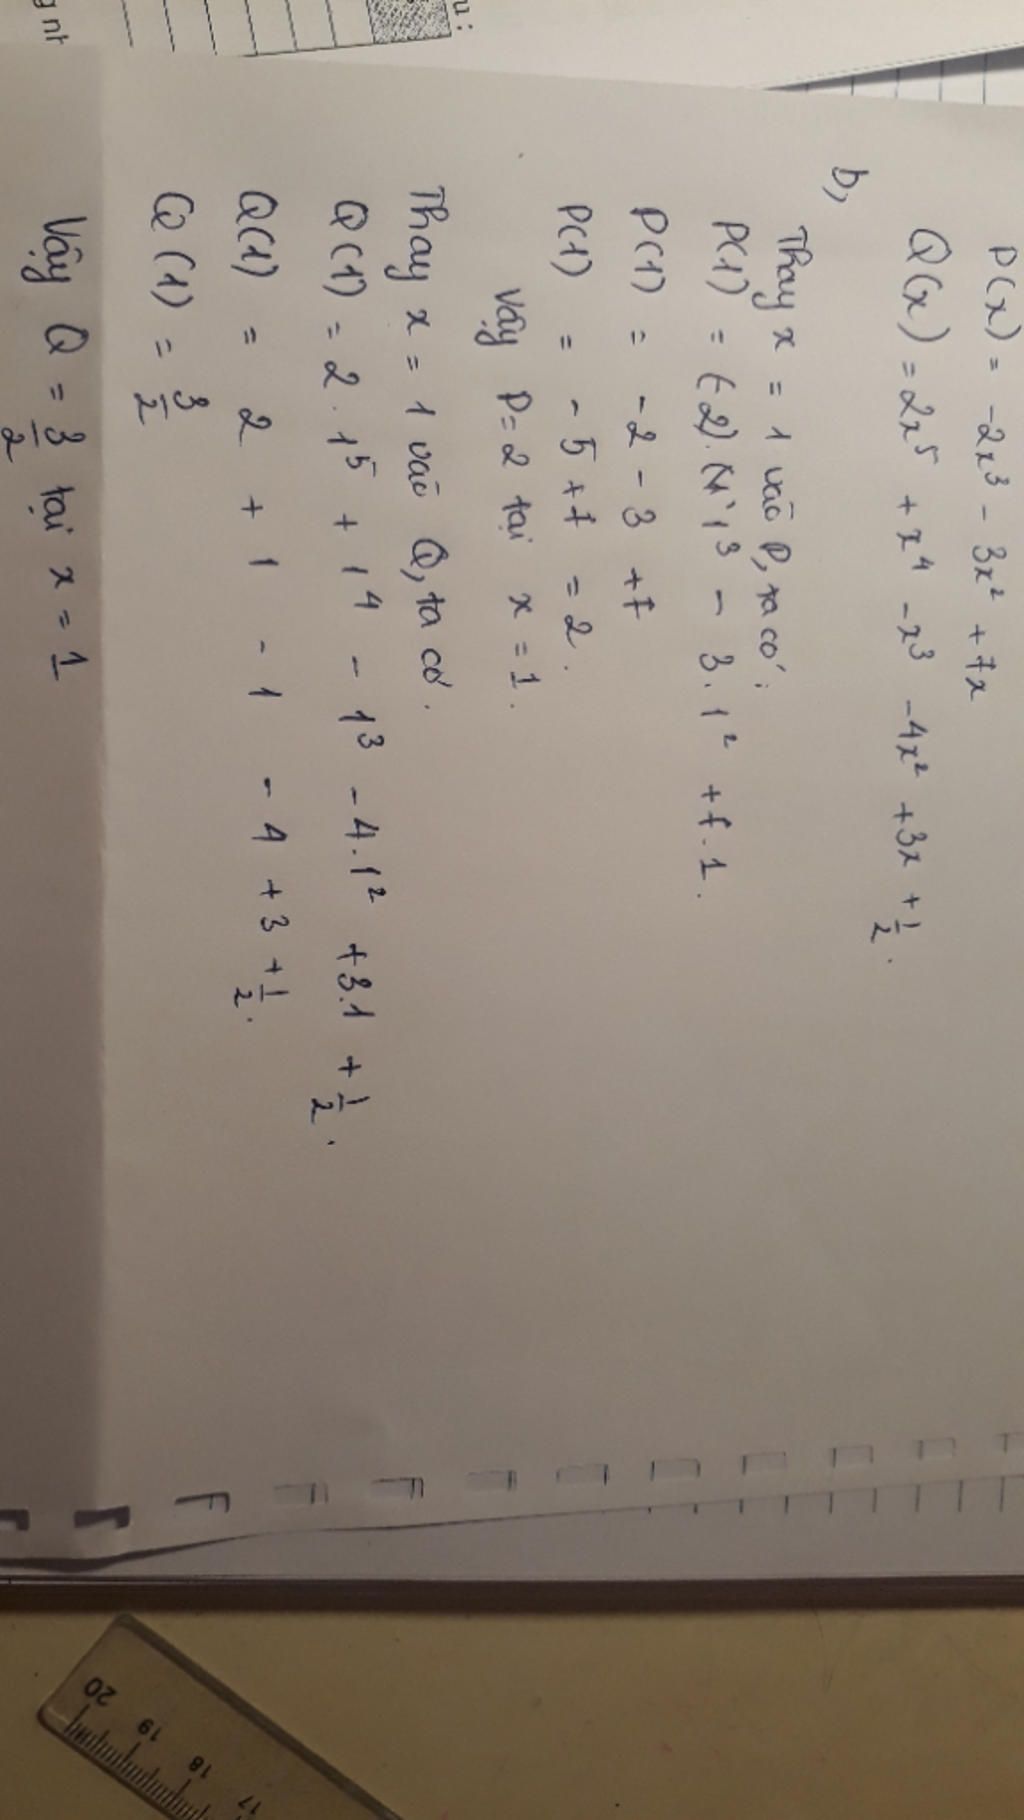 P(x) = -2x³ - 3x² + 7x
Q(x) = 2x⁵ + x⁴ - x³ - 4x² + 3x + 1/2.
b,
Thay x = 1 vào P, ta có:
P(1) = (-2). 1³ - 3.1² + 7.1.
P(1) = -2 - 3 + 7
P(1) = - 5 + 7 = 2.
Vậy P = 2 tại x = 1.
Thay x = 1 vào Q, ta có.
Q(1) = 2.1⁵ + 1⁴ - 1³ - 4.1² + 3.1 + 1/2.
Q(1) = 2 + 1 - 1 - 4 + 3 + 1/2.
Q(1) = 3/2
Vậy Q = 3/2 tại x = 1
u:
20 19 18 17